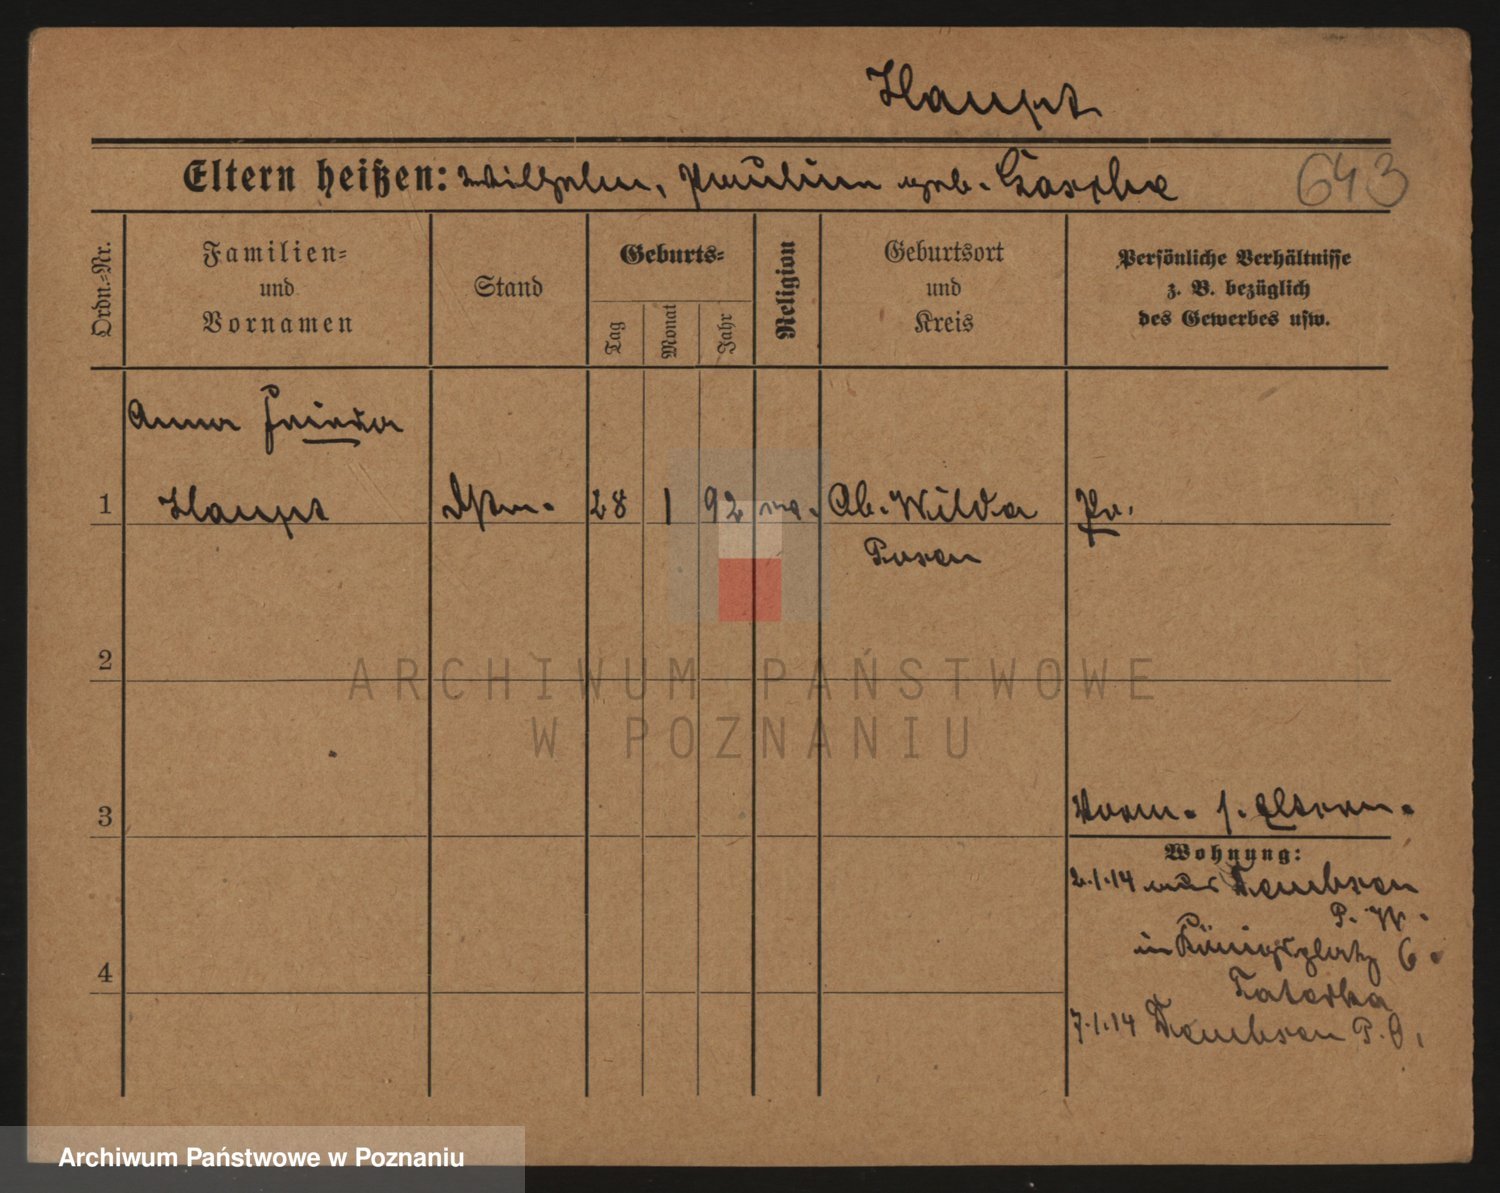 Haupt
Eltern heißen: Wilhelm, Pauline geb.
643
Ordn.-Nr.
Familien- und Vornamen
Stand
Geburts-
Tag
Monat
Jahr
Religion
Geburtsort und Kreis
Persönliche Verhältnisse z. B. bezüglich des Gewerbes usw.
Anna Frieda
1 Haupt 28 1 92 ev. Ob. Wilda Pr.
Posen
2
3
Vorm. s. Eltern.
Wohnung:
2.1.14 aus Dembsen
P. W.
in Königsplatz 6.
Tatorka
4
7.1.14 Dembsen P. O.
ARCHIWUM PAŃSTWOWE
W POZNANIU
Archiwum Państwowe w Poznaniu